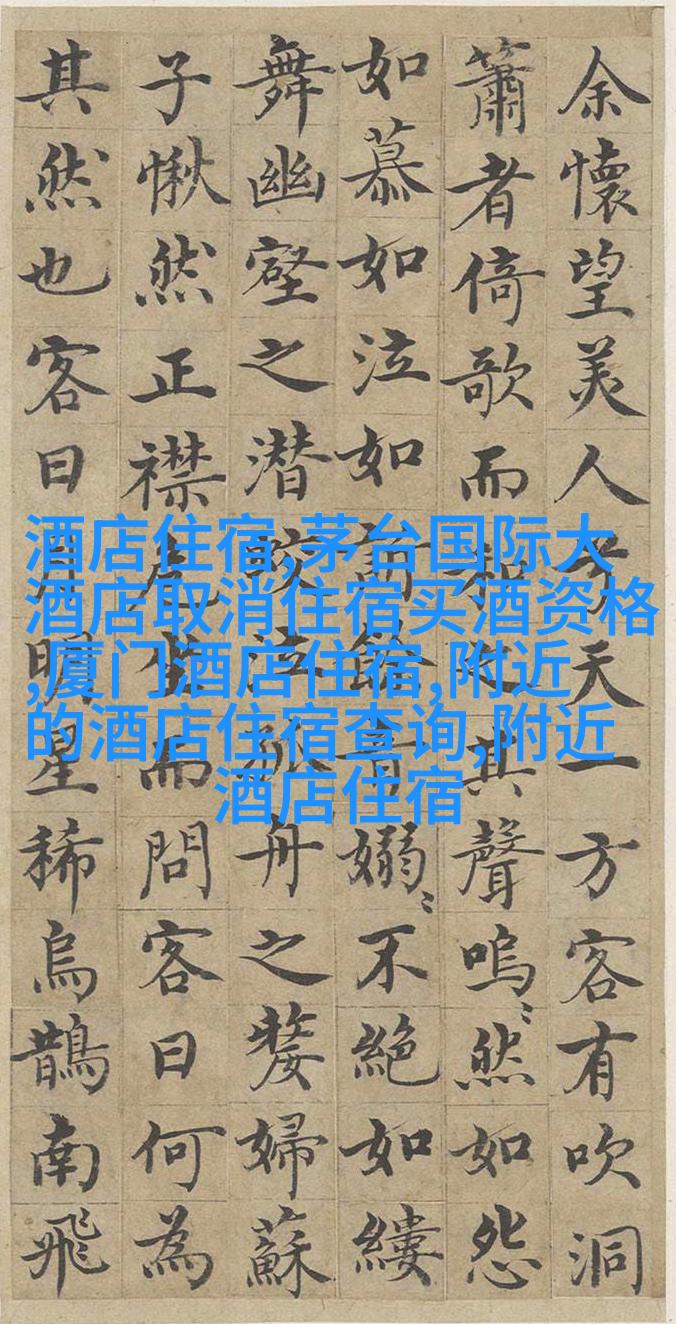 余懷望美人兮天一方客有吹洞
簫者倚歌而和之其聲嗚〻然如怨
如慕如泣如訴餘音嫋〻不絶如縷
舞幽壑之潜蛟泣孤舟之嫠婦蘇
子愀然正襟危坐而問客曰何為
其然也客曰月明星稀烏鵲南飛
酒店住宿,茅台国际大
酒店取消住宿买酒资格
,厦门酒店住宿,附近
的酒店住宿查询,附近
酒店住宿